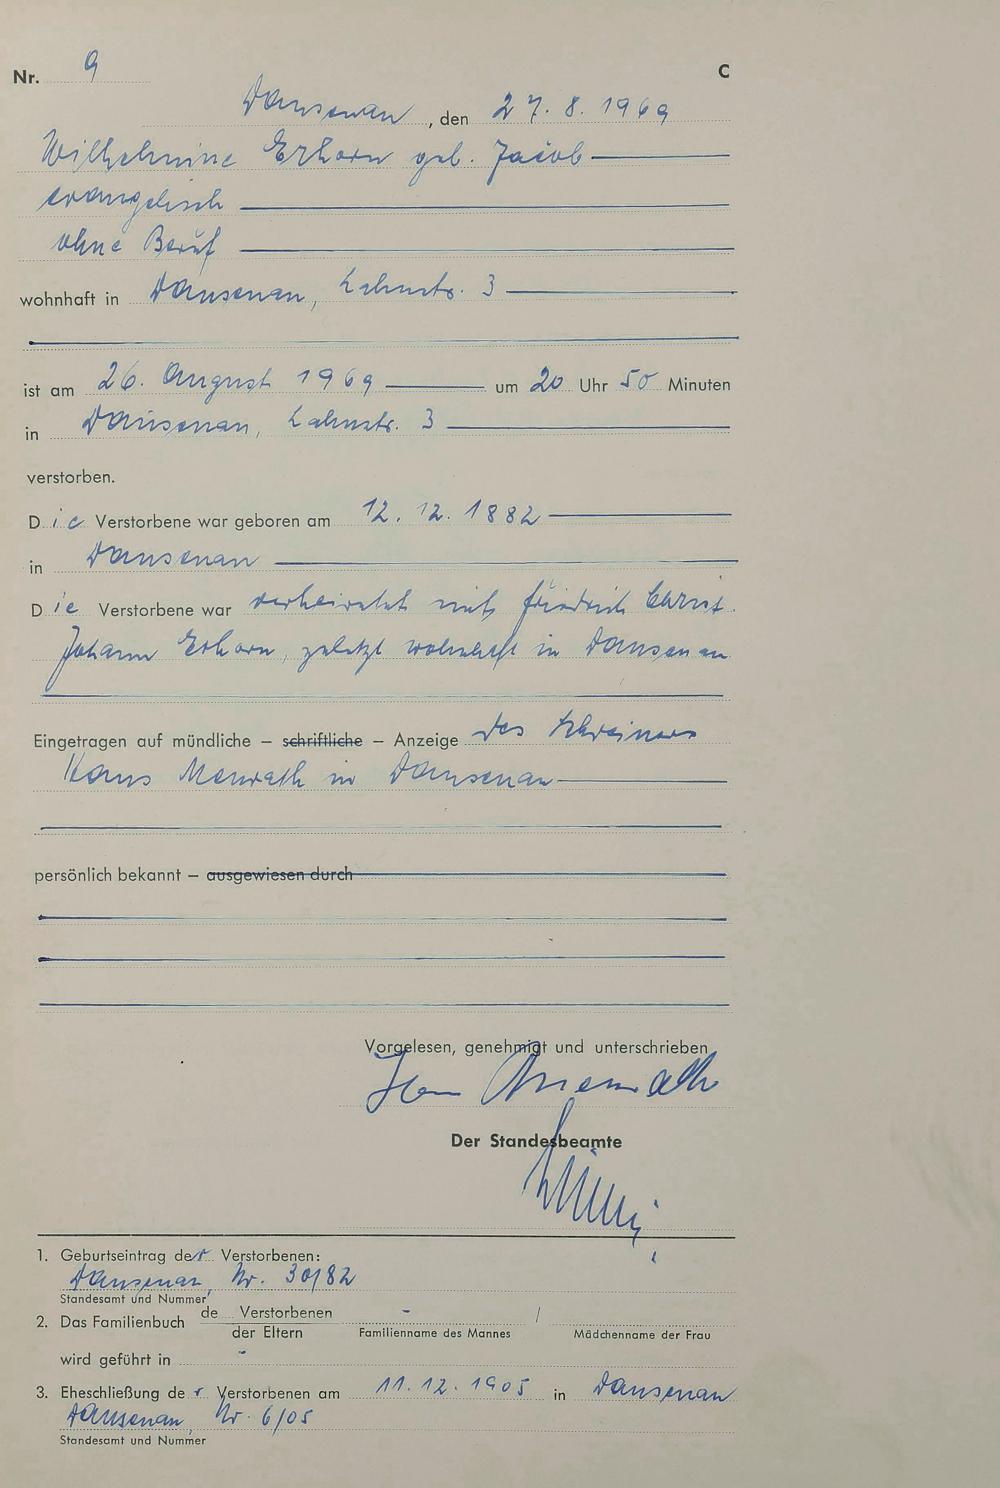 Nr. 9
C
Dausenau, den 27. 8. 1969
Wilhelmine Erhorn geb. Jacob
evangelisch
ohne Beruf
wohnhaft in Dausenau, Lahnstr. 3
ist am 26. August 1969 um 20 Uhr 50 Minuten
in Dausenau, Lahnstr. 3
verstorben.
Die Verstorbene war geboren am 12. 12. 1882
in Dausenau
Die Verstorbene war verheiratet mit Friedrich Christ.
Johann Erhorn, zuletzt wohnhaft in Dausenau
Eingetragen auf mündliche – schriftliche – Anzeige des Schreiners
Hans Menrath in Dausenau
persönlich bekannt – ausgewiesen durch
Vorgelesen, genehmigt und unterschrieben
Hans Menrath
Der Standesbeamte
1. Geburtseintrag der Verstorbenen:
Dausenau, Nr. 30/82
Standesamt und Nummer
2. Das Familienbuch de Verstorbenen - /
der Eltern Familienname des Mannes Mädchenname der Frau
wird geführt in -
3. Eheschließung der Verstorbenen am 11. 12. 1905 in Dausenau
Dausenau, Nr. 6/05
Standesamt und Nummer